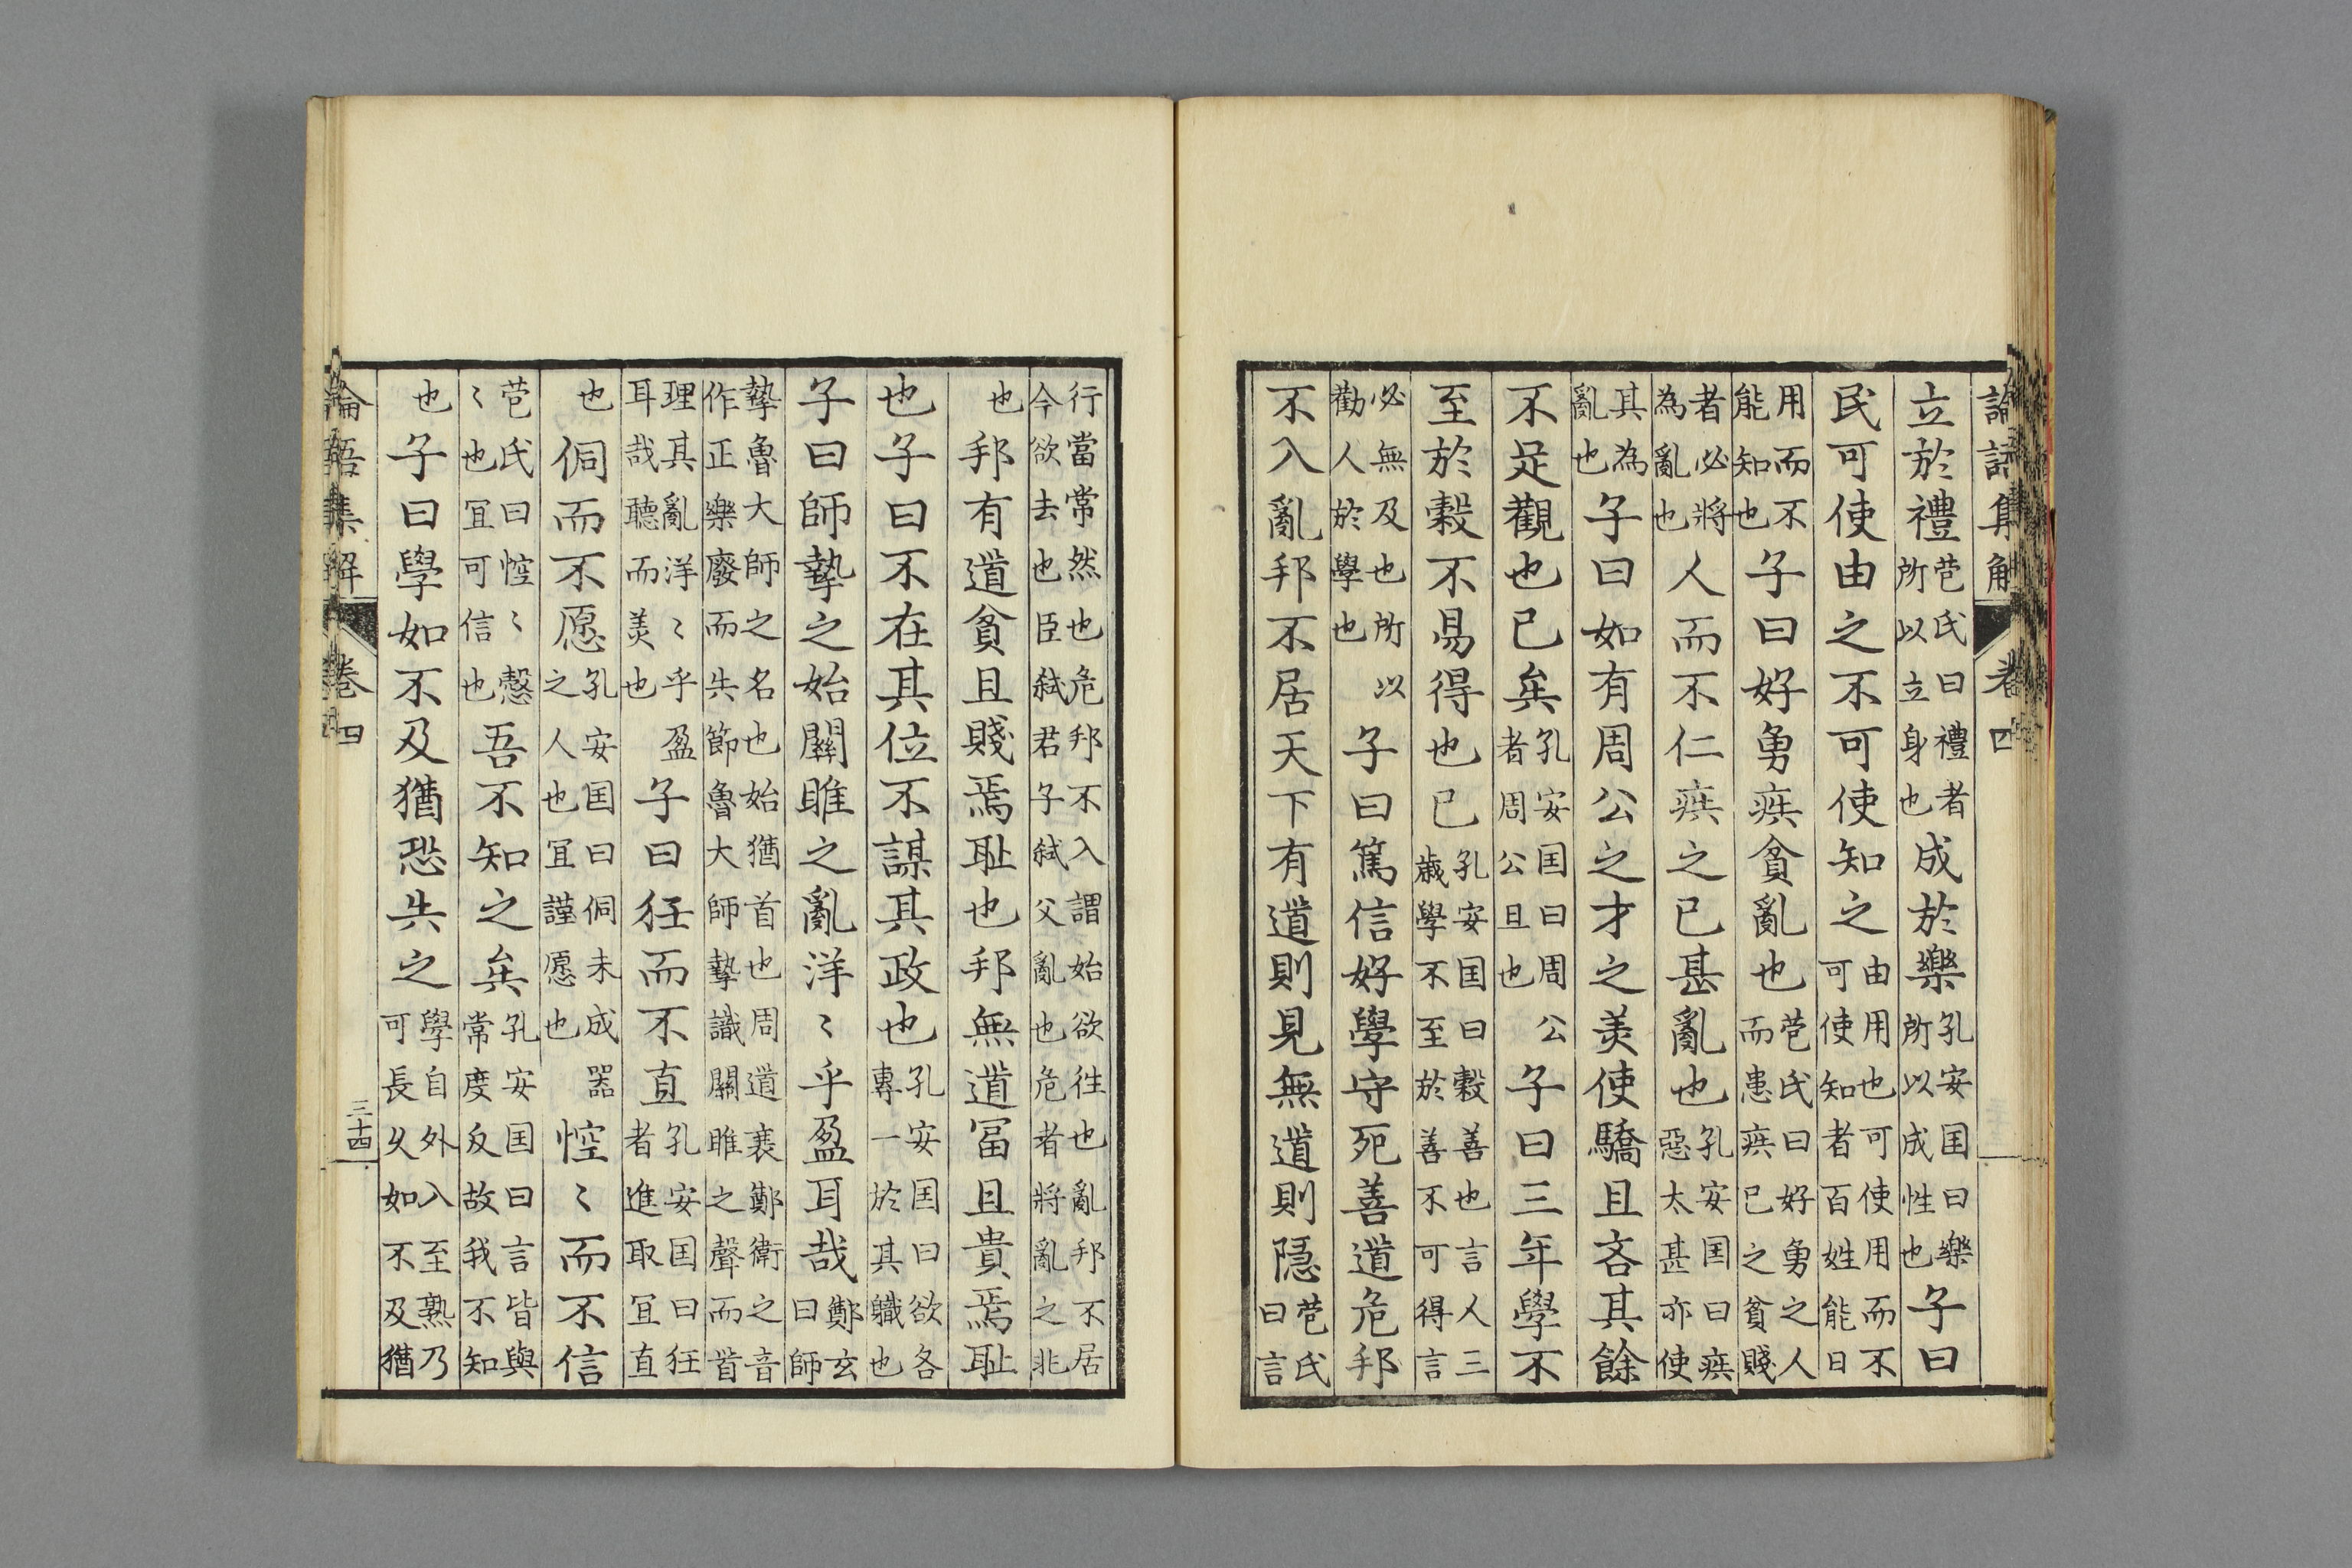 論語集解 卷四
立於禮苞氏曰禮者所以立身也成於樂孔安囯曰樂所以成性也子曰
民可使由之不可使知之由用也可使用而不可使知者百姓能日
用而不能知也子曰好勇疾貧亂也苞氏曰好勇之人而患疾已之貧賤
者必將為亂也人而不仁疾之已甚亂也孔安囯曰疾惡太甚亦使
其為亂也子曰如有周公之才之美使驕且吝其餘
不足觀也已矣孔安囯曰周公者周公旦也子曰三年學不
至於穀不易得也已孔安囯曰穀善也言人三歲學不至於善不可得言
必無及也所以勸人於學也子曰篤信好學守死善道危邦
不入亂邦不居天下有道則見無道則隱苞氏曰言
行當常然也危邦不入謂始欲往也亂邦不居今欲去也臣弒君子弒父亂也危者將亂之兆
也邦有道貧且賤焉耻也邦無道冨且貴焉耻
也子曰不在其位不謀其政也孔安囯曰欲各專一於其職也
子曰師摯之始關雎之亂洋〻乎盈耳哉鄭玄曰師
摯魯大師之名也始猶首也周道衰鄭衛之音作正樂廢而失節魯大師摯識關雎之聲而首
理其亂洋〻乎盈耳哉聽而美也子曰狂而不直孔安囯曰狂者進取宜直
也侗而不愿孔安囯曰侗未成器之人也宜謹愿也悾〻而不信
苞氏曰悾〻愨〻也宜可信也吾不知之矣孔安囯曰言皆與常度反故我不知
也子曰學如不及猶恐失之學自外入至熟乃可長久如不及猶
論語集解 卷四 三十四